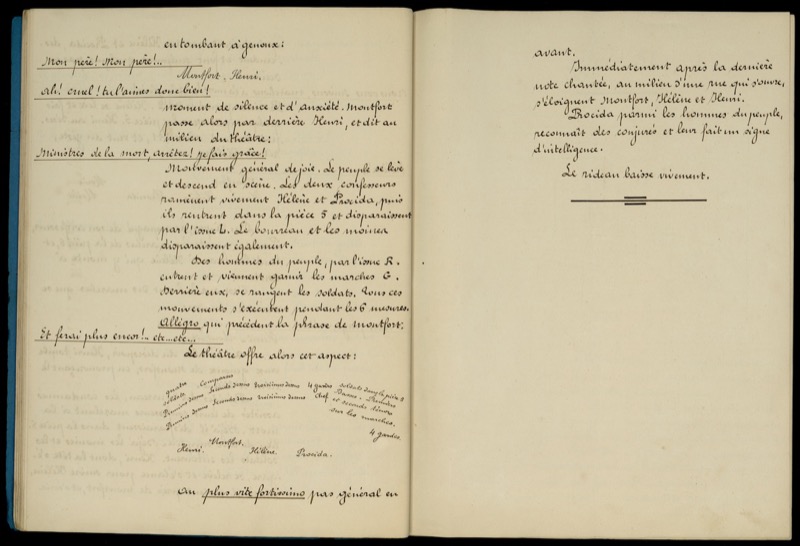 en tombant à genoux:
Mon père! Mon père!..
Montfort, Henri.
Ah! cruel! tu l'aimes donc bien!
moment de silence et d'anxiété. Montfort
passe alors par derrière Henri, et dit au
milien du théâtre:
Ministres de la mort, arrêtez! je fais grâce!
Mouvement général de joie. Le peuple se lève
et descend en scène. Les deux confesseurs
ramènent vivement Hélène et Procida, puis
ils rentrent dans la pièce 5 et disparaissent
par l'issue L. Le bourreau et les moines
disparaissent également.
Des hommes du peuple, par l'issue K.
entrent et viennent garnir les marches G.
Derrière eux, se rangent les soldats. Tous ces
mouvements s'exécutent pendant les 6 mesures.
Allegro qui précèdent la phrase de Montfort:
Et ferai plus encor!.. etc...etc...
Le théâtre offre alors cet aspect:
quatre soldats
Comparses
soldats dans la pièce 5
Premiers dessus Seconds dessus troisièmes dessus 4 gardes Basses. Premiers
Premiers dessus Seconds dessus troisièmes dessus chef et seconds ténors
sur les marches.
4 gardes.
Montfort.
Henri. Hélène. Procida.
Au plus vite fortissimo pas général en
avant.
Immédiatement après la dernière
note chantée, au milieu d'une rue qui s'ouvre,
s'éloignent Montfort, Hélène et Henri.
Procida parmi les hommes du peuple,
reconnaît des conjurés et leur fait un signe
d'intelligence.
Le rideau baisse vivement.